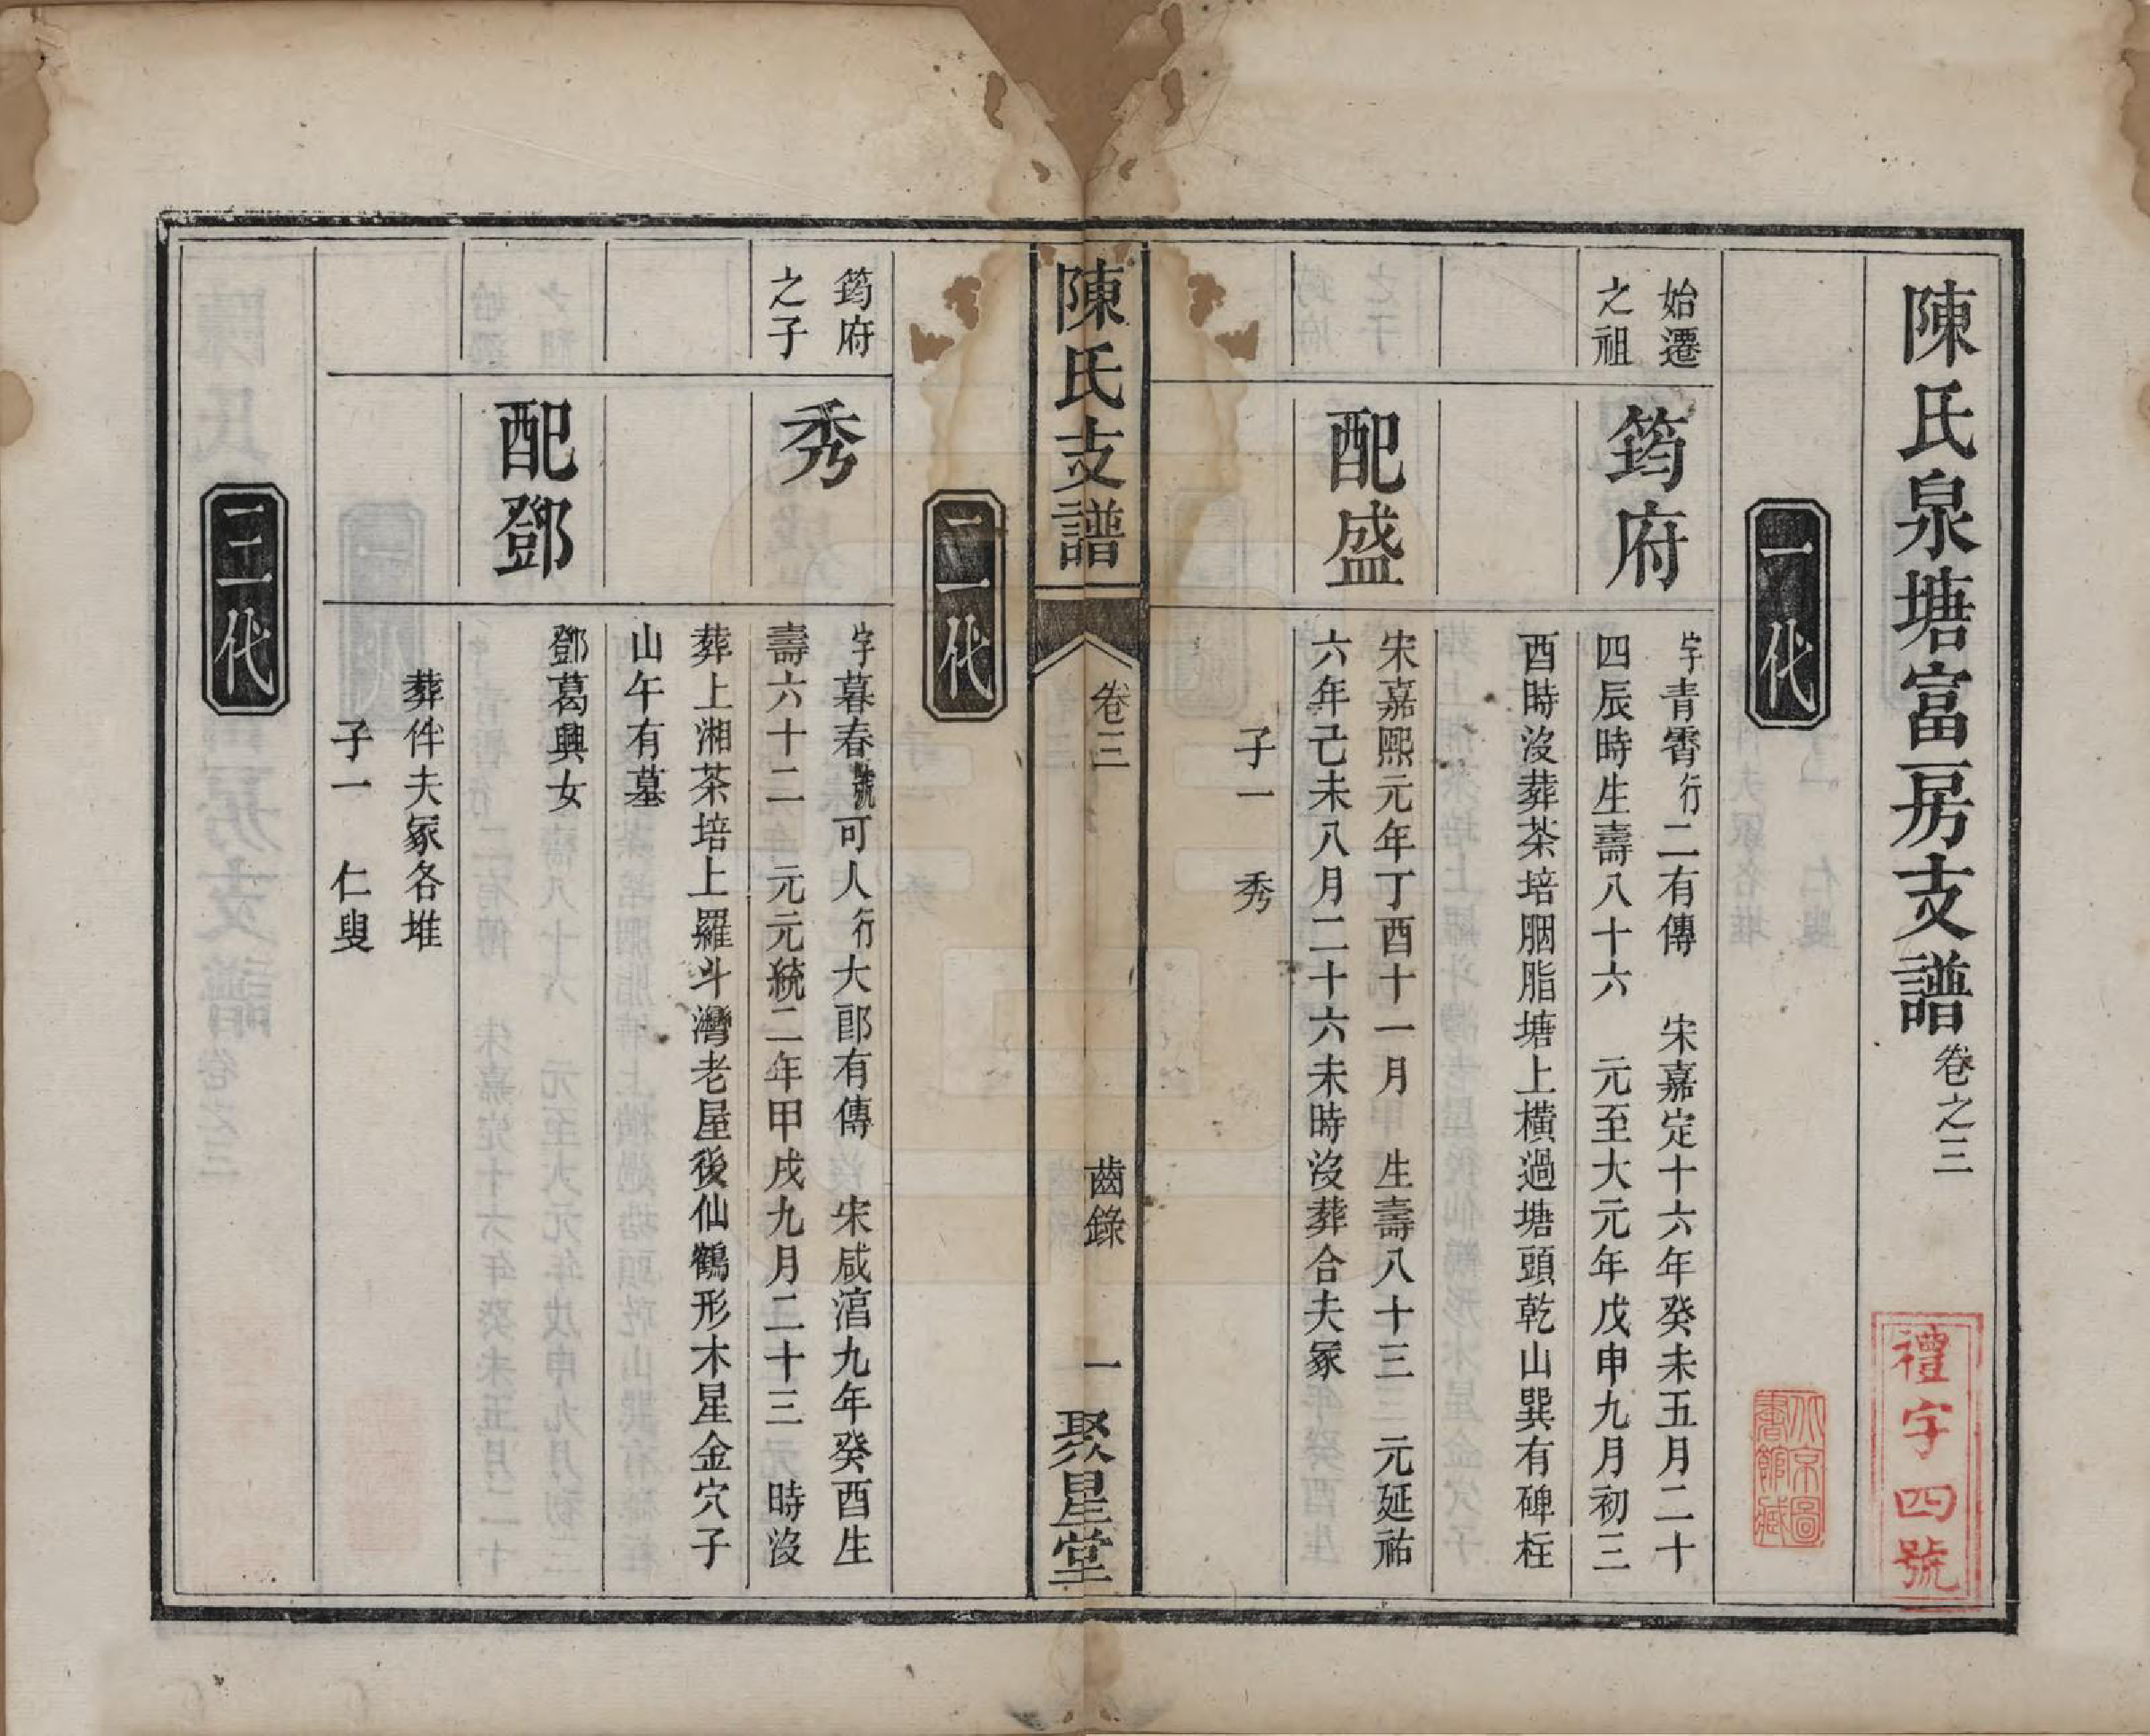 陳氏泉塘富房支譜卷之三
禮字四號
一代
北京圖書館藏
始遷之祖
筠府
字青霄行二有傳　宋嘉定十六年癸未五月二十
四辰時生壽八十六　元至大元年戊申九月初三
酉時沒葬茶培胭脂塘上橫過塘頭乾山巽有碑柱
配盛
宋嘉熙元年丁酉十一月　生壽八十三　元延祐
六年己未八月二十六未時沒葬合夫冢
子一　秀
陳氏支譜
卷三
齒錄
一
聚星堂
二代
筠府之子
秀
字暮春號可人行大郎有傳　宋咸淯九年癸酉生
壽六十二　元元統二年甲戌九月二十三　時沒
葬上湘茶培上羅斗灣老屋後仙鶴形木星金穴子
山午有墓
配鄧
鄧葛興女
葬伴夫冢各堆
子一　仁叟
三代